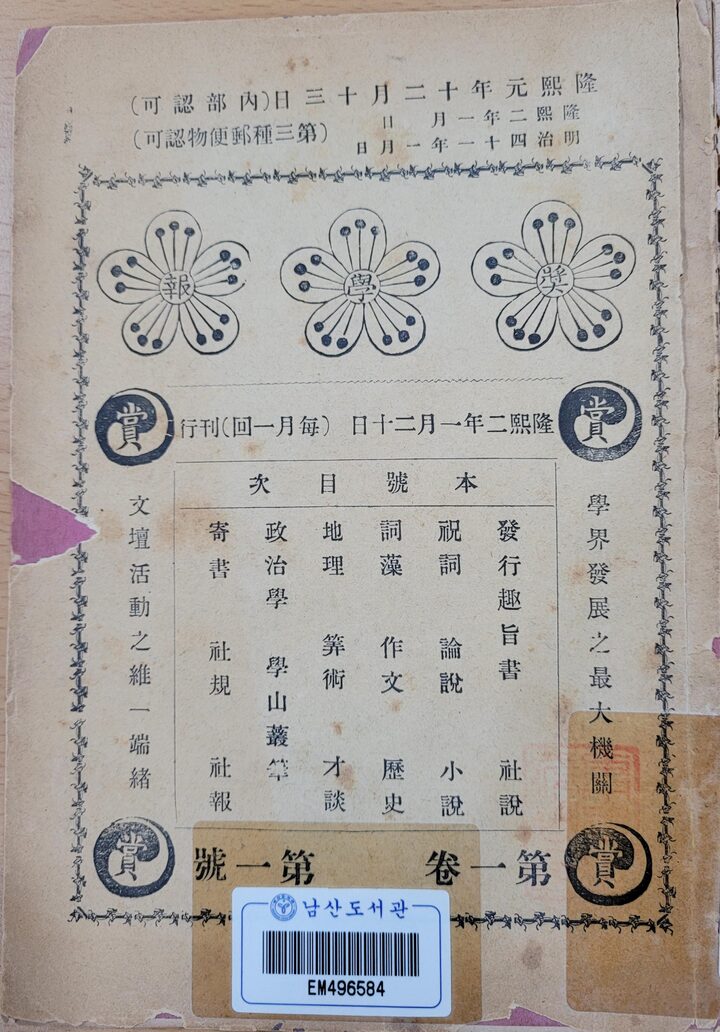 隆熙元年十二月十三日(內部認可)
隆熙二年一月 日
明治四十一年一月 日
(第三種郵便物認可)
奬學報
賞
隆熙二年一月二十日 (每月一回)刊行
賞
學界發展之最大機關
本號目次
發行趣旨書 社說
祝詞 論說 小說
詞藻 作文 歷史
地理 筭術 才談
政治學 學山叢筆
寄書 社規 社報
文壇活動之維一端緖
賞
第一卷 第一號
賞
남산도서관
EM496584